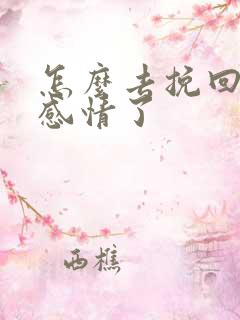 怎麼去挽回
感情了
西樵